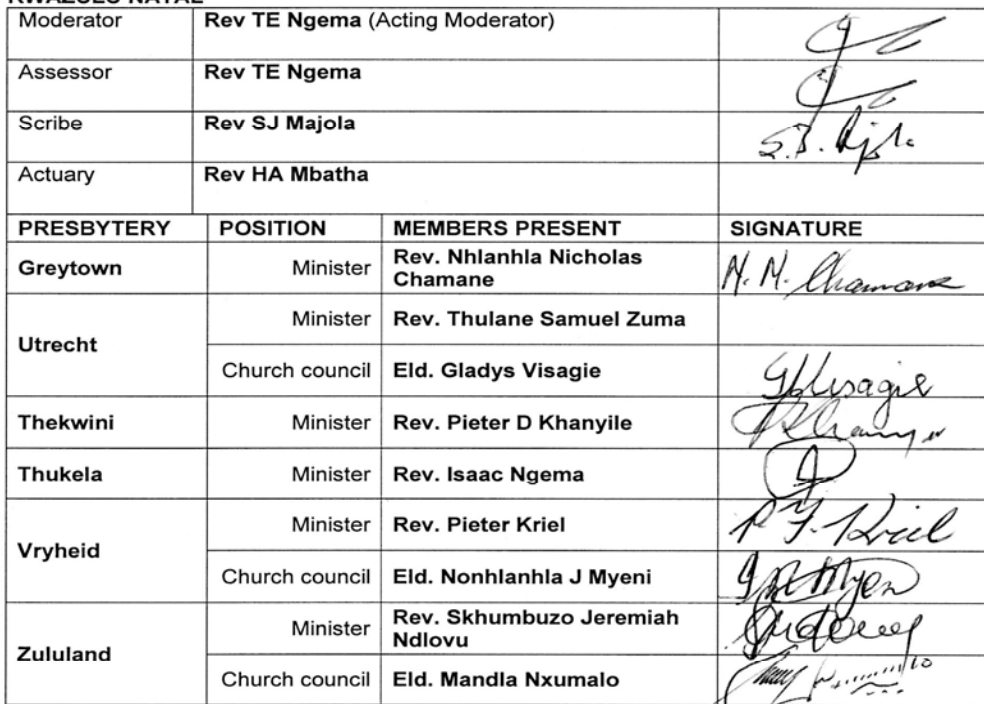 KWAZULU NATAL
Moderator Rev TE Ngema (Acting Moderator)
Assessor Rev TE Ngema
Scribe Rev SJ Majola
Actuary Rev HA Mbatha
PRESBYTERY POSITION MEMBERS PRESENT SIGNATURE
Greytown Minister Rev. Nhlanhla Nicholas
Chamane N. N. Chamane
Utrecht
Minister Rev. Thulane Samuel Zuma
Church council Eld. Gladys Visagie GVisagie
Thekwini Minister Rev. Pieter D Khanyile
Thukela Minister Rev. Isaac Ngema
Vryheid
Minister Rev. Pieter Kriel Kriel
Church council Eld. Nonhlanhla J Myeni
Zululand
Minister Rev. Skhumbuzo Jeremiah
Ndlovu
Church council Eld. Mandla Nxumalo